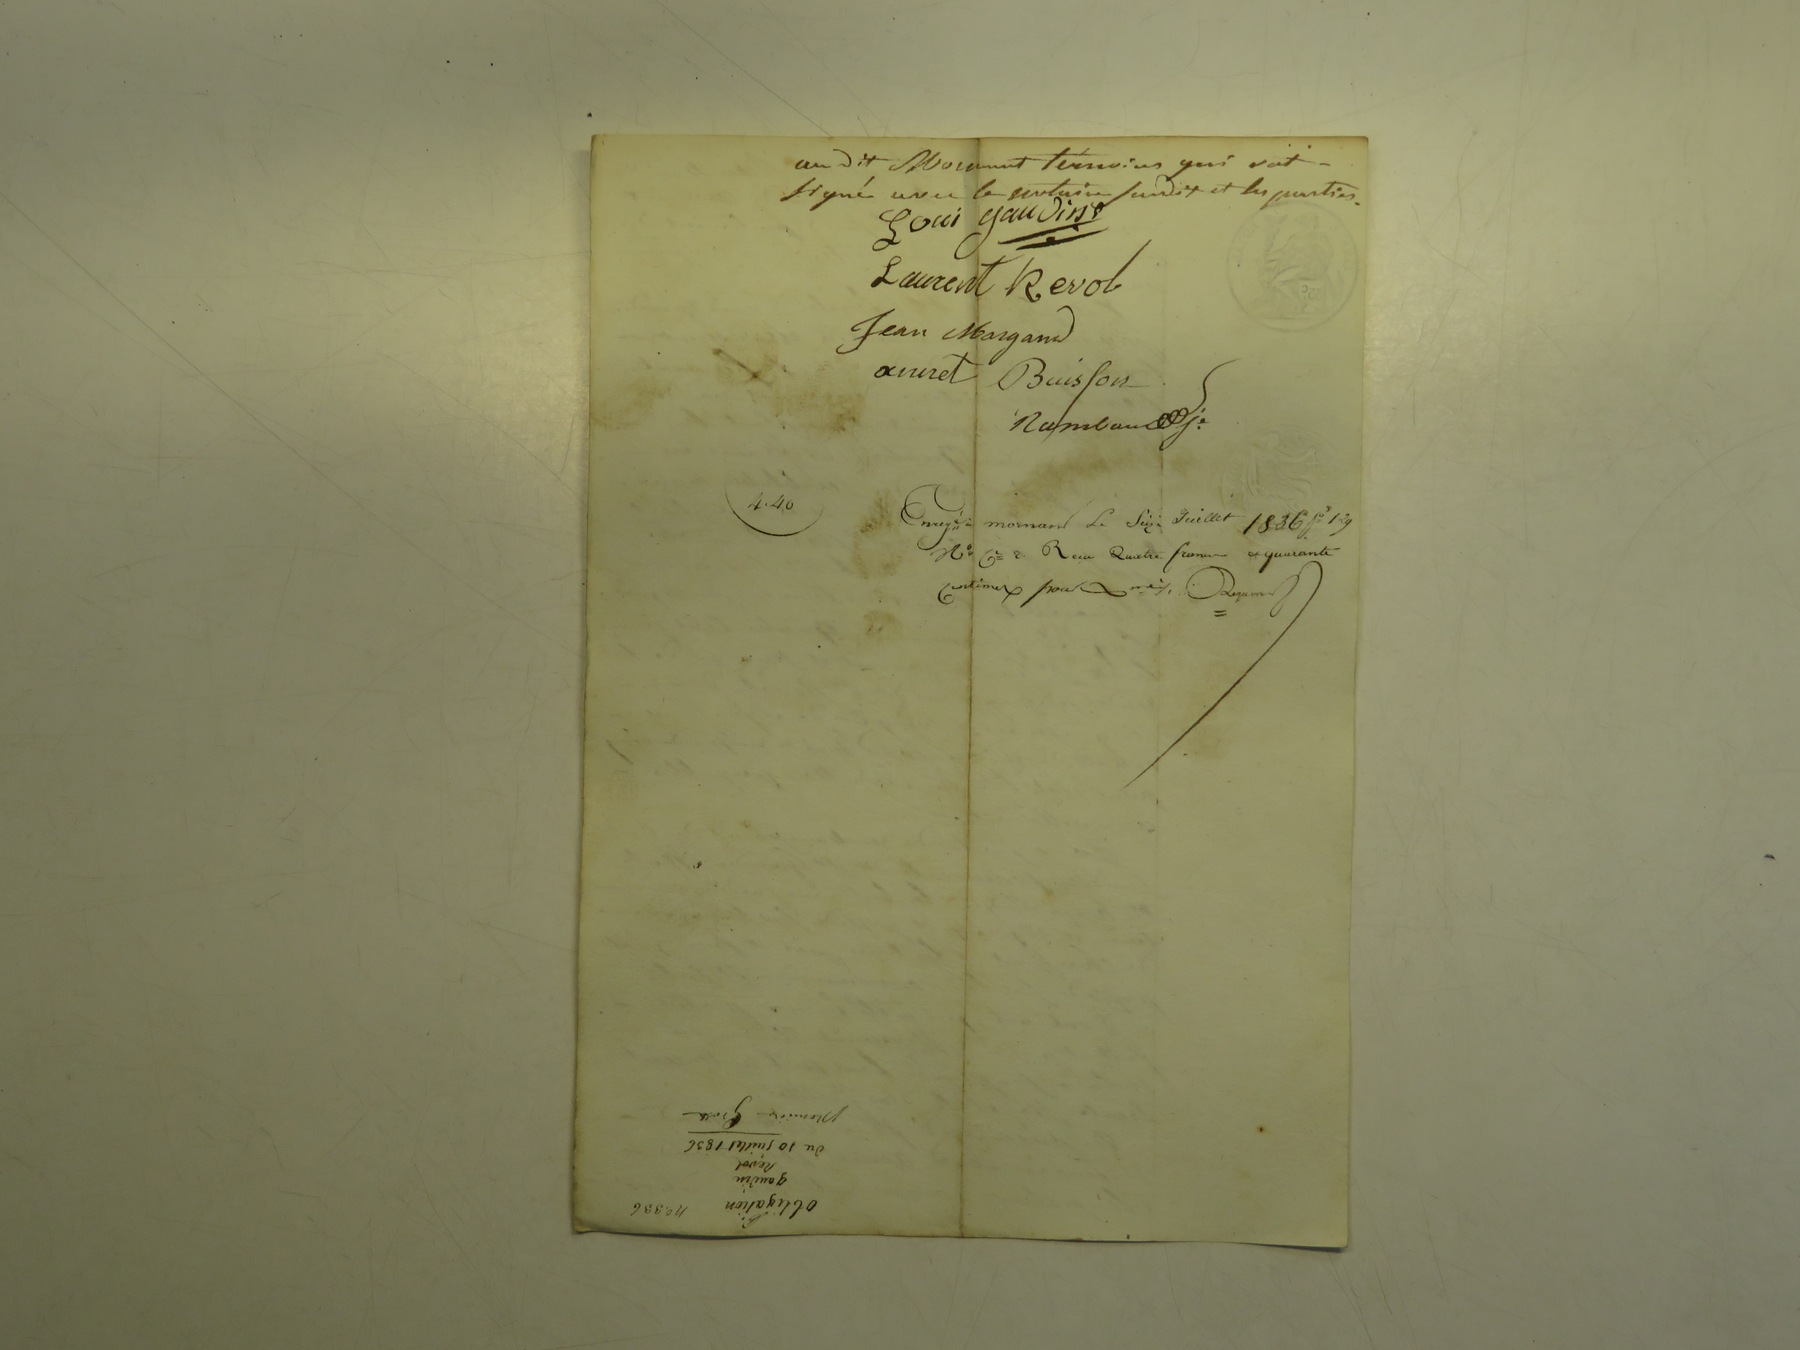 audit Mornant témoins qui ont
signé avec le notaire susdit et les parties.
Loui gaudin
Laurent Revol
Jean Morgand
Buisson
Rambaud
4.40
Enregé à mornant Le Seize Juillet 1836 fo 129
Ro Co 2 Reçu Quatre francs et quarante
Centimes pour
No 336
Obligation
gaudin
à
Revol
du 10 juillet 1836
première Grosse